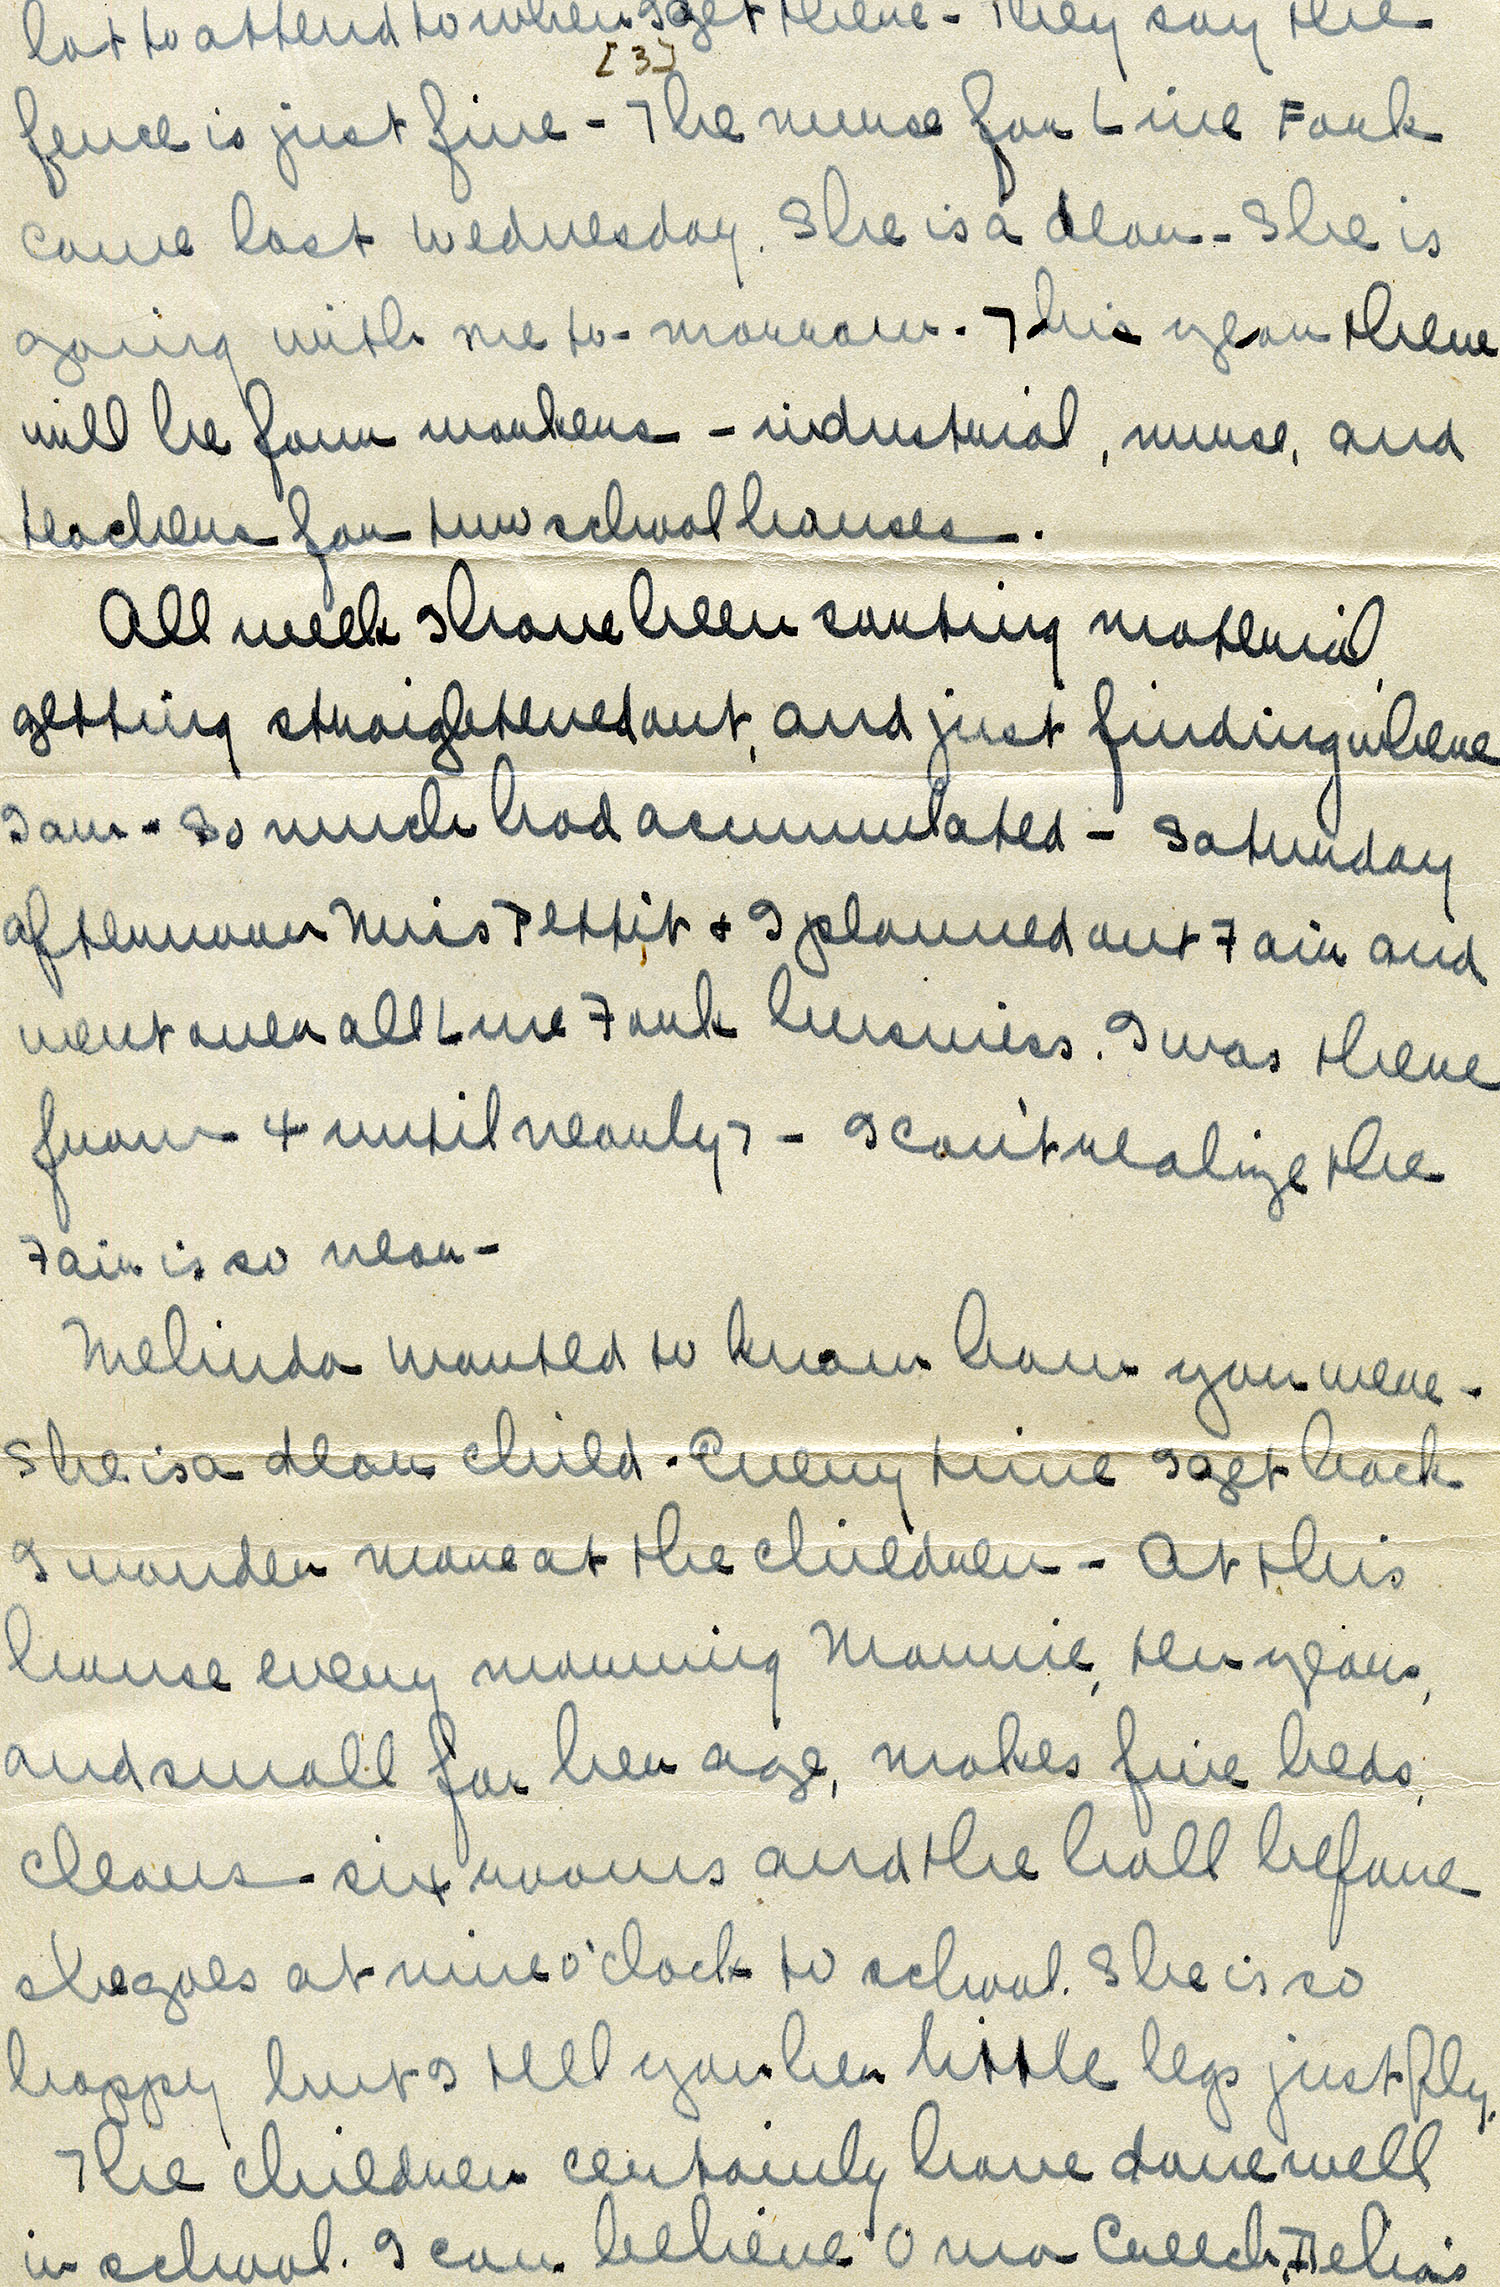 lot to attend to when I get there - They say the
[3]
fence is just fine - The nurse for Line Fork
came last Wednesday. She is a dear - She is
going with me to-morrow. This year there
will be four workers - industrial, nurse, and
teachers for two school houses.
All week I have been sorting material,
getting straightened out, and just finding where
I am - So much had acummulated - Saturday
afternoon Miss Pettit + I planned out Fair and
went over all Line Fork business. I was there
from 4 until nearly 7 - I can't realize the
Fair is so near -
Melinda wanted to know how you were -
She is a dear child. Every time I get back
I wonder more at the children - At this
house every morning Mannie, ten years,
and small for her age, makes five beds,
cleans six rooms and the hall before
she goes at nine o'clock to school. She is so
happy but I tell you her little legs just fly.
The children certainly have done well
in school. I can believe Oma Creech, Delia's